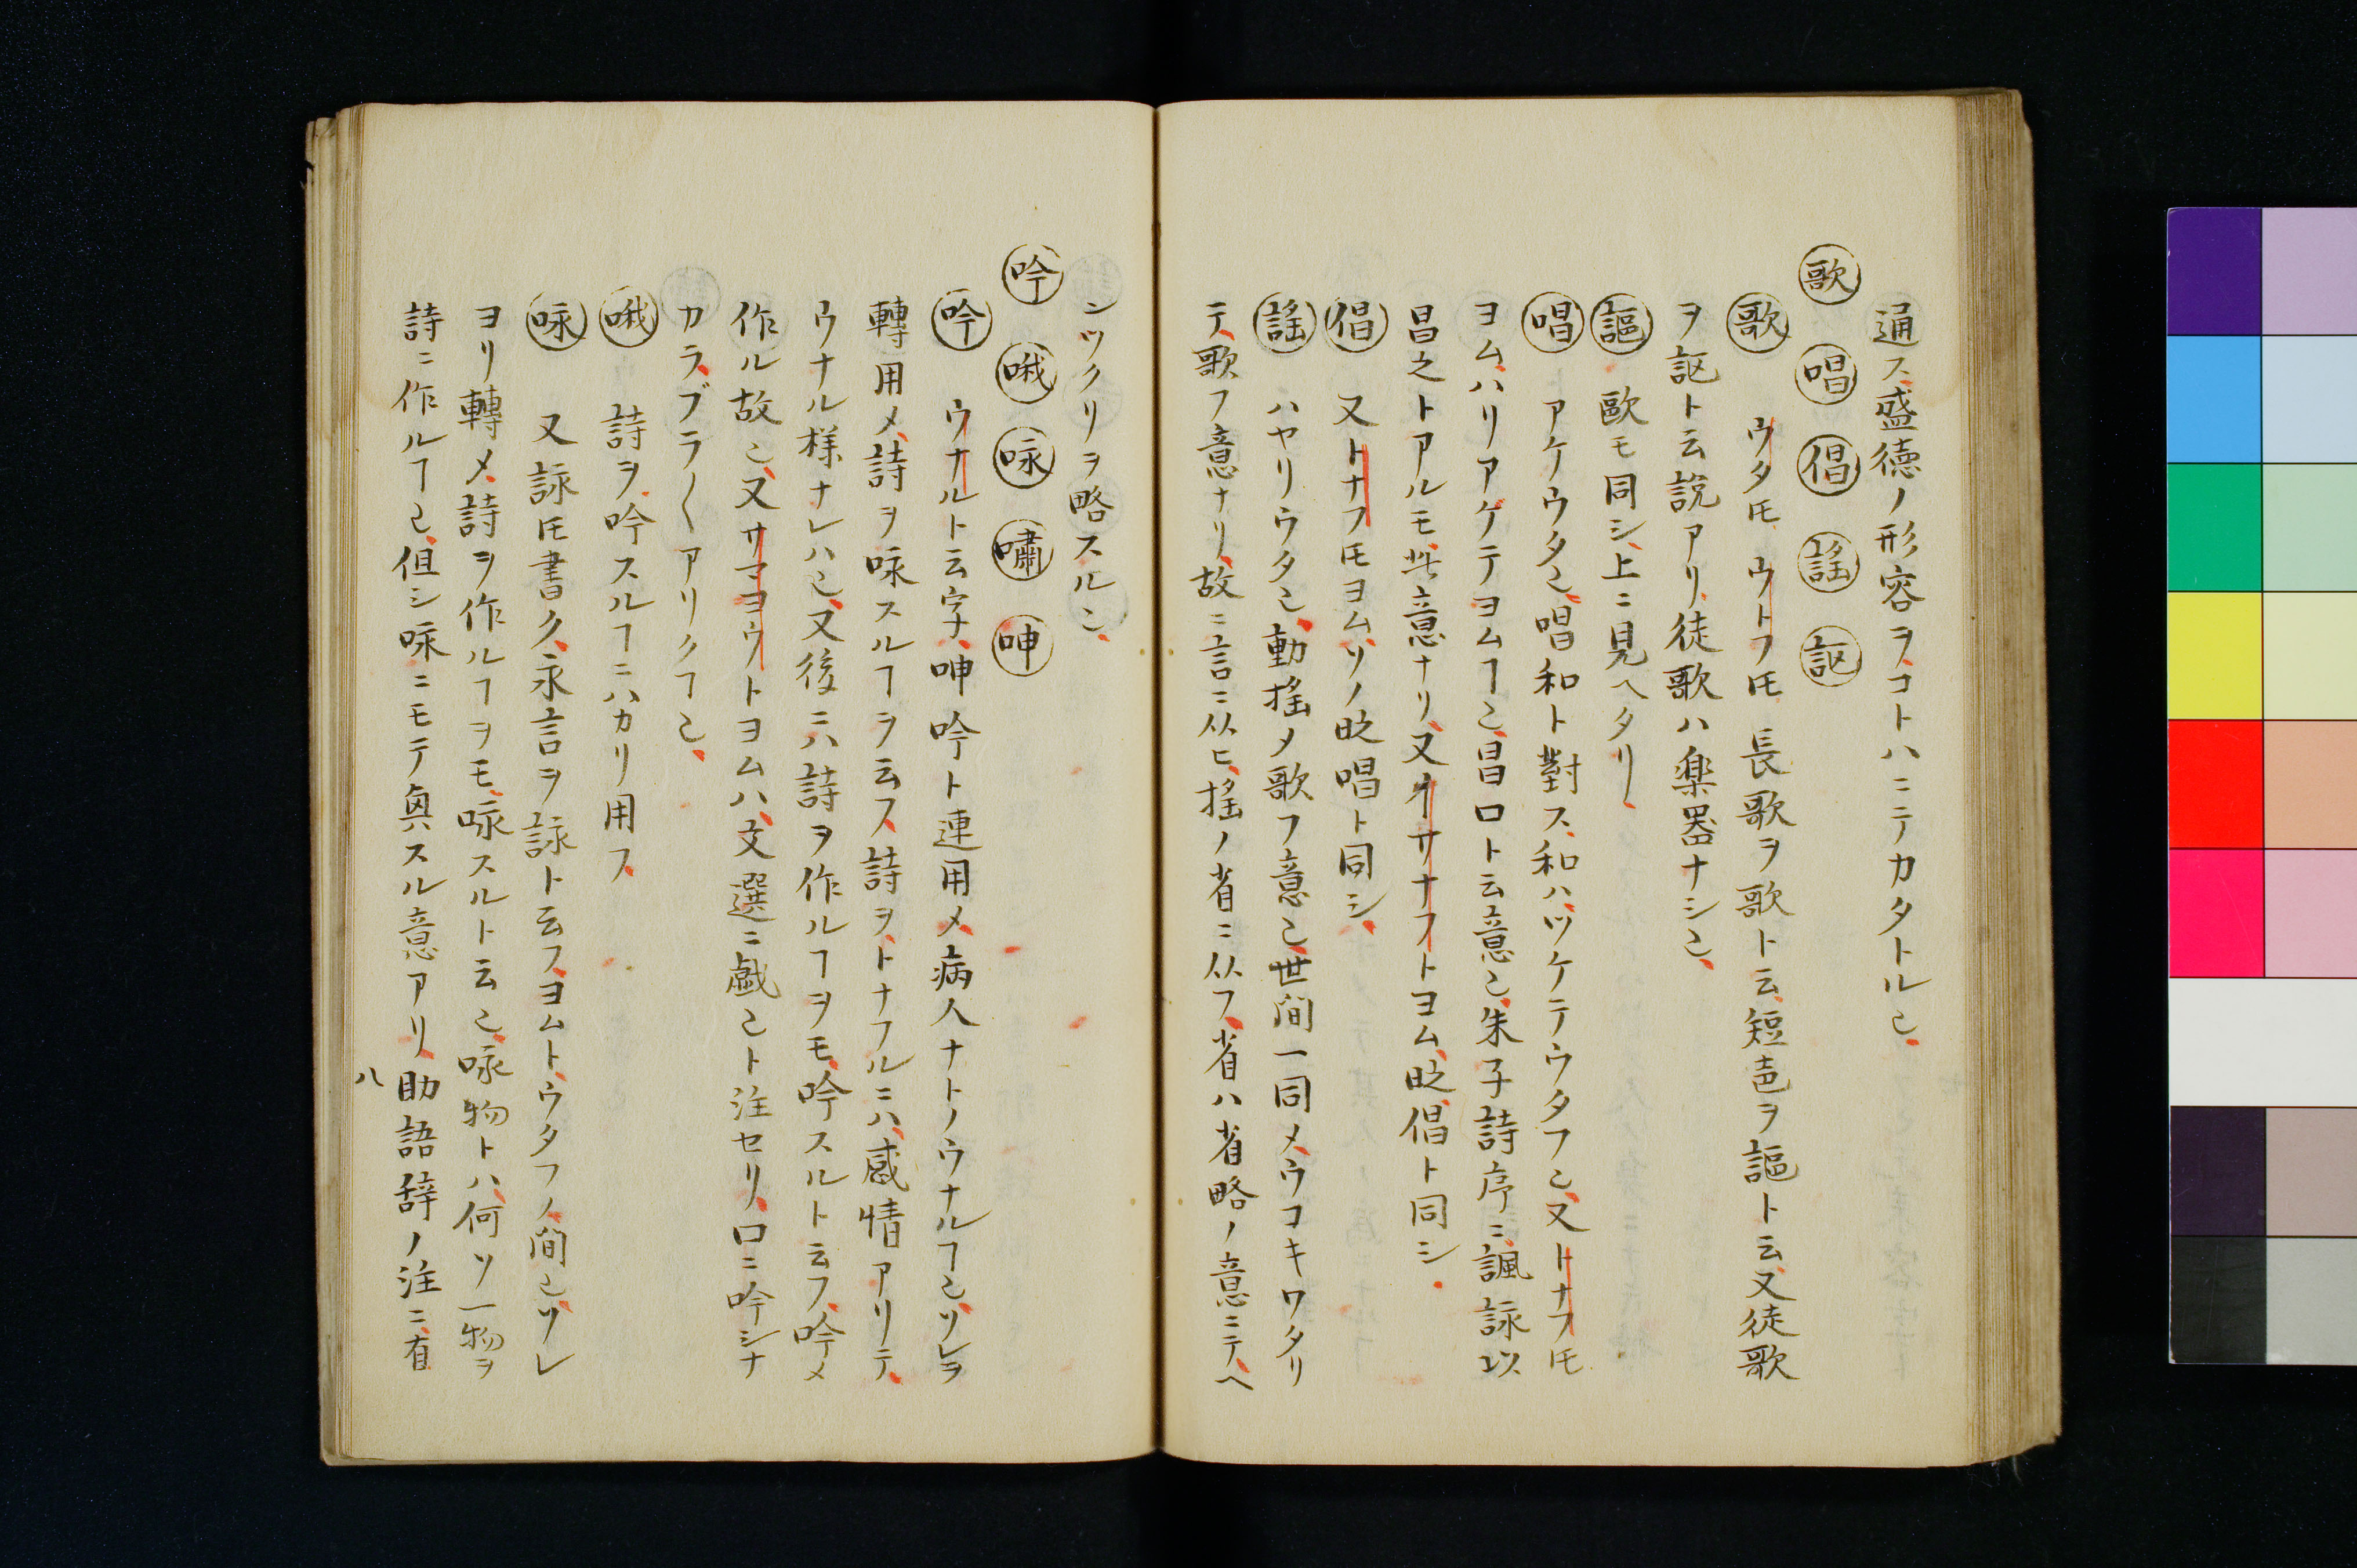 通ス盛徳ノ形容ヲコトハニテカタトルヿ
歌 唱 倡 謡 䚫
歌 ウタ𪜈ウトフ𪜈長歌ヲ歌ト云短壱ヲ謳ト云又徒歌
ヲ䚫ト云説アリ徒歌ハ楽器ナシ也
謳 歐モ同シ上ニ見ヘタリ
唱 アケウタ也唱和ト對ス和ハツケテウタフ也又トナフ𪜈
ヨムハリアゲテヨムヿ也昌口ト云意也朱子詩序ニ諷詠以
昌之トアルモ此意ナリ又イサナフトヨム眨倡ト同シ
倡 又トナフ𪜈ヨムソノ眨唱ト同シ
謡 ハヤリウタ也動揺メ歌フ意也世間一同メウコキワタリ
テ歌フ意ナリ故ニ言ニ从ヒ揺ノ省ニ从フ省ハ省略ノ意ニテヘ
ンツクリヲ略スル也
吟 哦 咏 嘯 呻
吟 ウナルト云字呻吟ト連用メ病人ナトノウナルヿ也ソレヲ
轉用メ詩ヲ咏スルヿヲ云フ詩ヲトナフルニハ感情アリテ
ウナル様ナレハ也又後ニハ詩ヲ作ルヿヲモ吟スルト云フ吟メ
作ル故也又サマヨウトヨムハ文選ニ戯也ト注セリ口ニ吟シナ
カラブラ〱アリクヿ也
哦 詩ヲ吟スルヿニハカリ用フ
咏 又詠𪜈書ク永言ヲ詠ト云フヨムトウタフノ間也ソレ
ヨリ轉メ詩ヲ作ルヿヲモ咏スルト云也咏物トハ何ソ一物ヲ
詩ニ作ルヿ也但シ咏ニモテ真スル意アリ助語辞ノ注ニ有
八